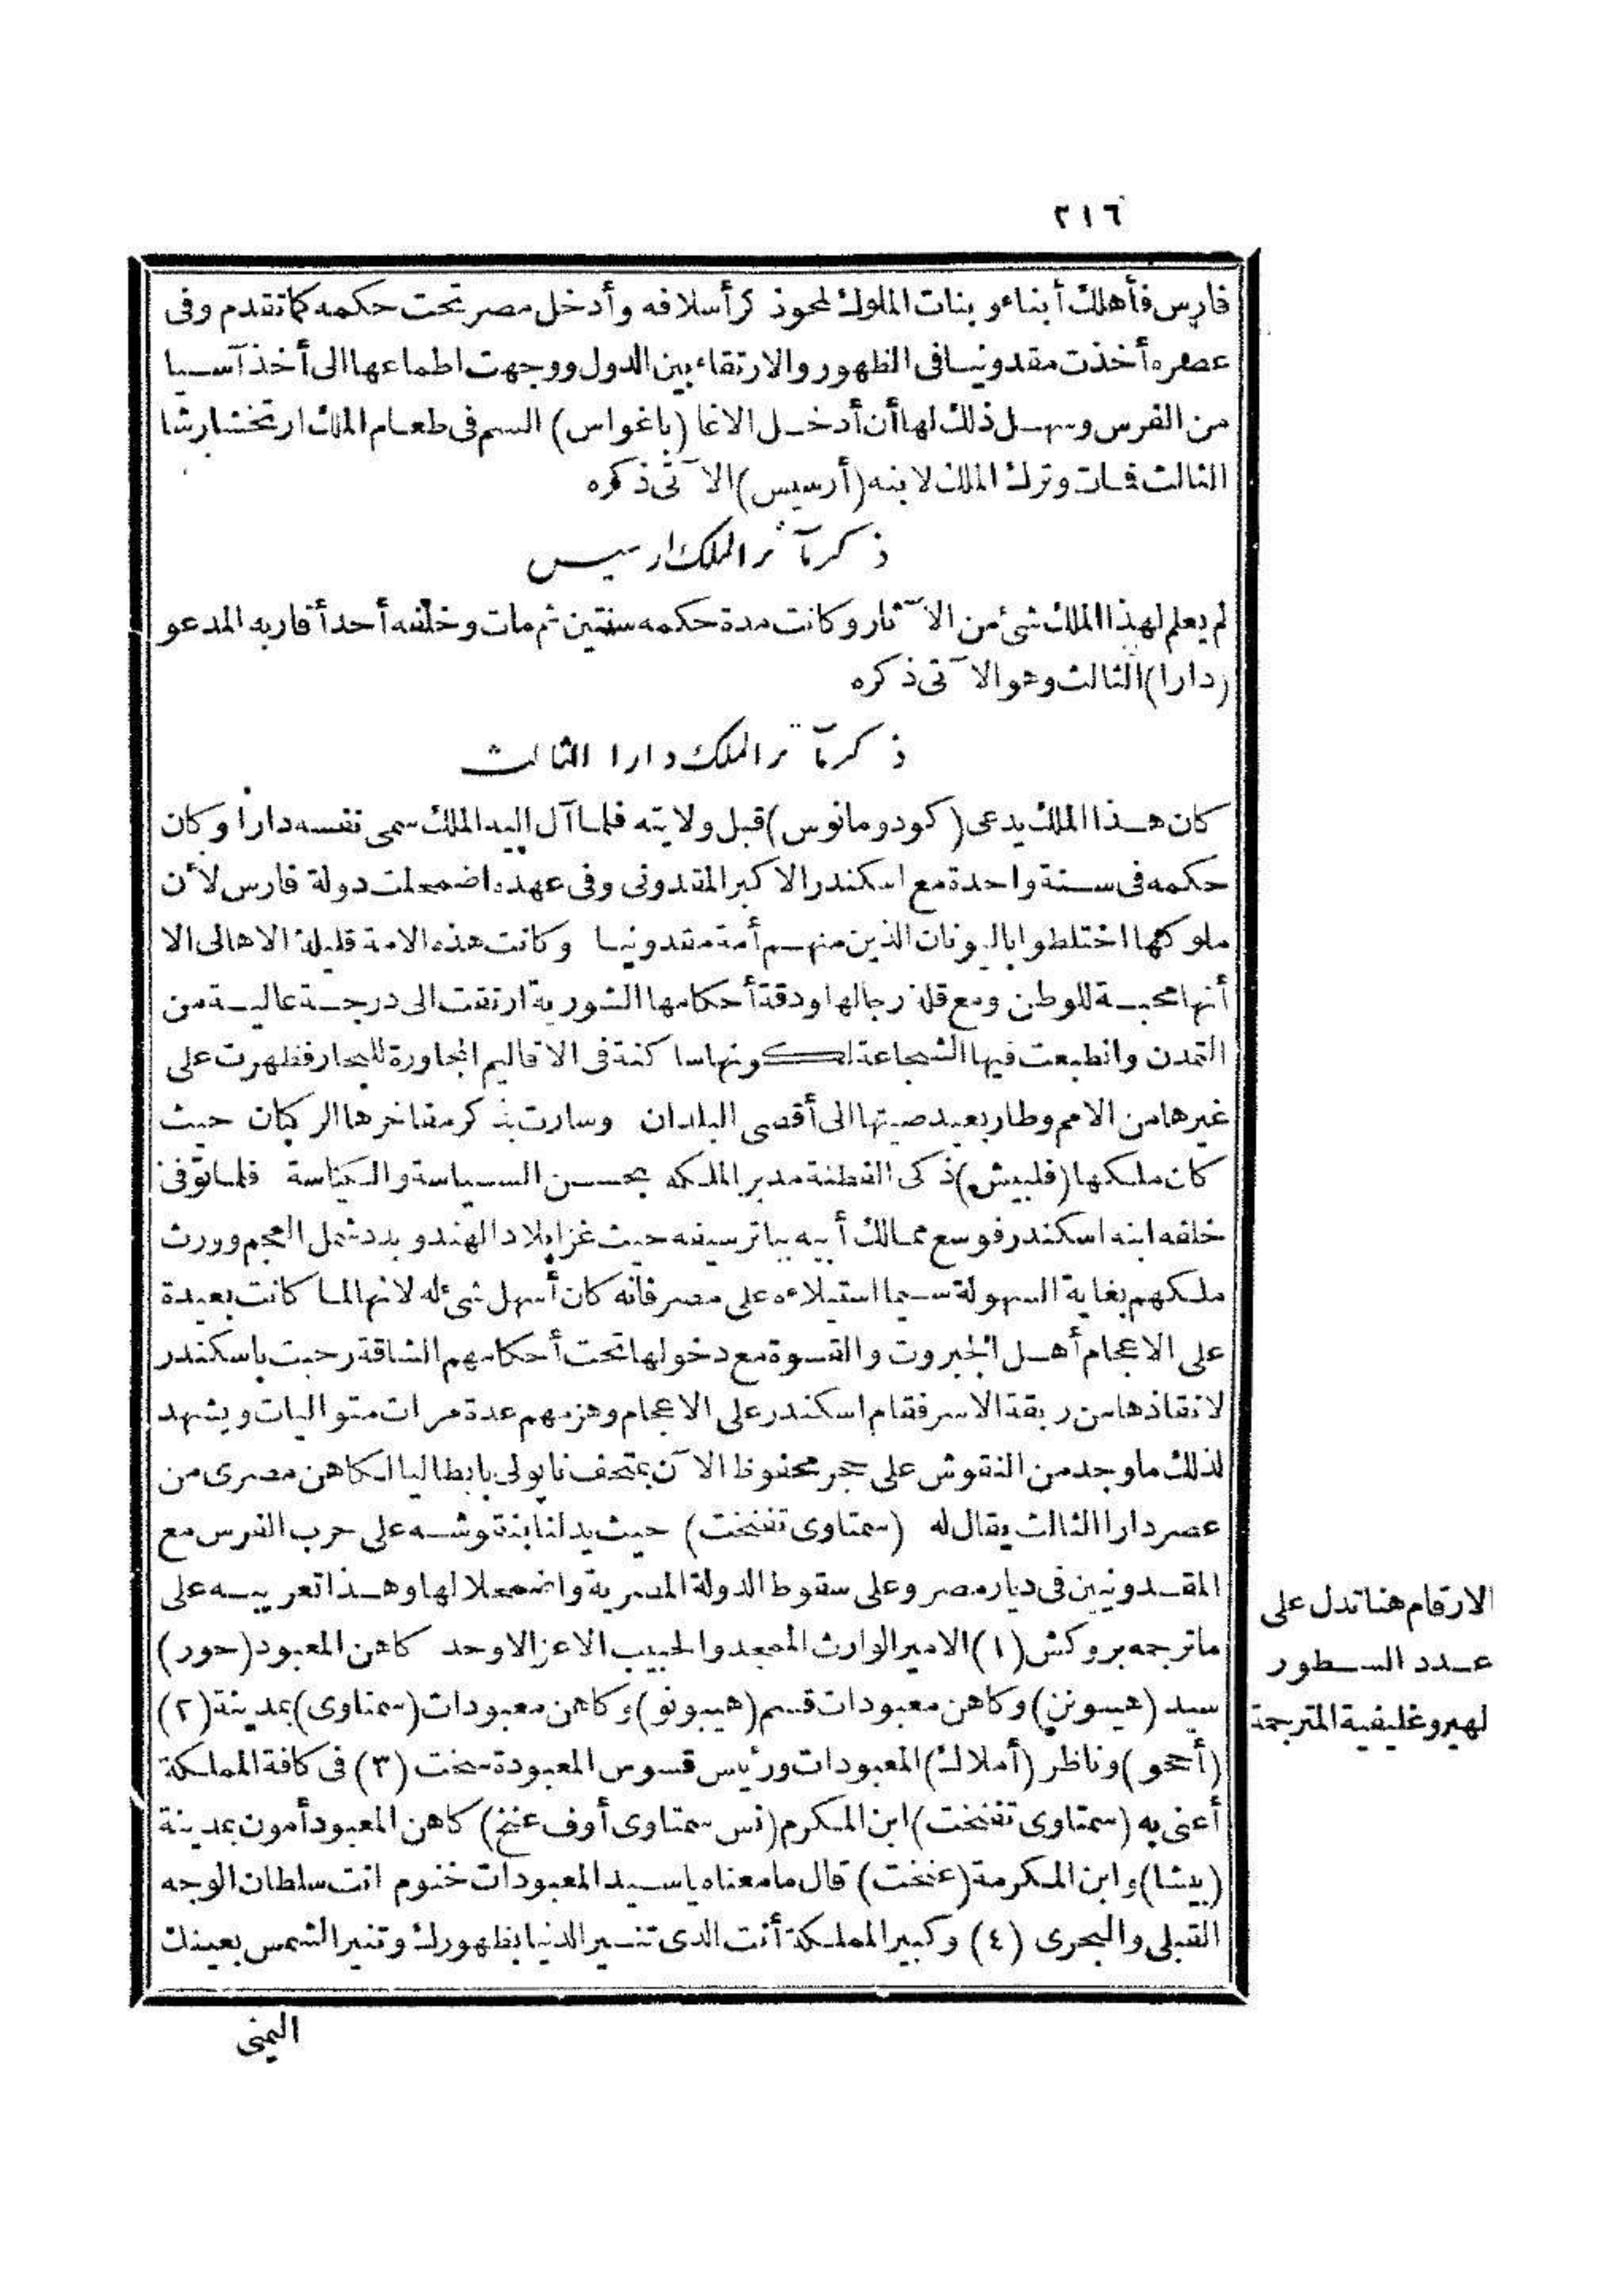 ٢١٦
فارس فأهلك أبناء وبنات الملوك لمحو ذكر أسلافه وأدخل مصر تحت حكمه كما تقدم وفى
عصره أخذت مقدونيا فى الظهور والارتقاء بين الدول ووجهت اطماعها الى أخذ آسيا
من الفرس وسهل ذلك لها أن أدخل الاغا (باغواس) السم فى طعام الملك ارتخشارشا
الثالث فمات وترك الملك لابنه (أرسيس) الآتى ذكره
ذكر مآثر الملك ارسيس
لم يعلم لهذا الملك شئ من الآثار وكانت مدة حكمه سنتين ثم مات وخلفه أحد أقاربه المدعو
(دارا) الثالث وهو الآتى ذكره
ذكر مآثر الملك دارا الثالث
كان هذا الملك يدعى (كودومانوس) قبل ولايته فلما آل اليه الملك سمى نفسه دارا وكان
حكمه فى سنة واحدة مع اسكندر الاكبر المقدونى وفى عهده اضمحلت دولة فارس لأن
ملوكها اختلطوا باليونان الذين منهم أمة مقدونيا وكانت هذه الامة قليلة الاهالى الا
أنها محبة للوطن ومع قلة رجالها ودقة أحكامها الشورية ارتقت الى درجة عالية من
التمدن وانطبعت فيها الشجاعة لكونها ساكنة فى الاقاليم المجاورة للبحار فظهرت على
غيرها من الامم وطار بعيد صيتها الى أقصى البلدان وسارت بذكر مفاخرها الركبان حيث
كان ملكها (فليبش) ذكى الفطنة مدبر المملكة بحسن السياسة والكياسة فلما توفى
خلفه ابنه اسكندر فوسع ممالك أبيه بباتر سيفه حيث غزا بلاد الهند وبدد شمل العجم وورث
ملكهم بغاية السهولة سيما استيلاءه على مصر فانه كان أسهل شئ له لانها لما كانت بعيدة
على الاعجام أهل الجبروت والقسوة مع دخولها تحت أحكامهم الشاقة رحبت باسكندر
لانقاذها من ربقة الاسر فقام اسكندر على الاعجام وهزمهم عدة مرات متواليات ويشهد
لذلك ما وجد من النقوش على حجر محفوظ الآن بمتحف نابولى بايطاليا لكاهن مصرى من
عصر دارا الثالث يقال له (سمتاوى تفنخت) حيث يدلنا بنقوشه على حرب الفرس مع
المقدونيين فى ديار مصر وعلى سقوط الدولة المصرية واضمحلالها وهذا تعريبه على
ما ترجمه بروكش (١) الامير الوارث الممجد والحبيب الاعز الاوحد كاهن المعبود (حور)
سيد (هيبونن) وكاهن معبودات قسم (هيبونو) وكاهن معبودات (سمتاوى) بمدينة (٢)
(أححو) وناظر (أملاك) المعبودات ورئيس قسوس المعبودة سخت (٣) فى كافة المملكة
أعنى به (سمتاوى تفنخت) ابن المكرم (نس سمتاوى أوف عنخ) كاهن المعبود أمون بمدينة
(بيشا) وابن المكرمة (عنخت) قال ما معناه يا سيد المعبودات خنوم انت سلطان الوجه
القبلى والبحرى (٤) وكبير المملكة أنت الذى تنير الدنيا بظهورك وتنير الشمس بعينك
الارقام هنا تدل على
عدد السطور
لهيروغليفية المترجمة
اليمنى